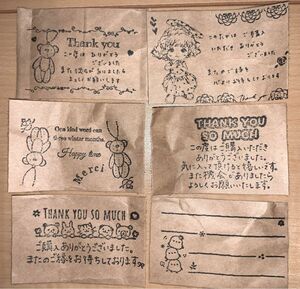 Thank you
この度は ありがとう
ございました
また機会がありましたら
よろしくお願いします
この度は ご購入
いただき ありがとう
ございました
またのご縁を
心よりお待ちしております
One kind word can
warm three winter months
Happy time
Merci
THANK YOU
SO MUCH
この度はご購入いただき
ありがとうございました。
気に入って頂けたら嬉しいです。
また機会がありましたら
よろしくお願いいたします。
THANK YOU SO MUCH
ご購入ありがとうございました。
またのご縁をお待ちしております。